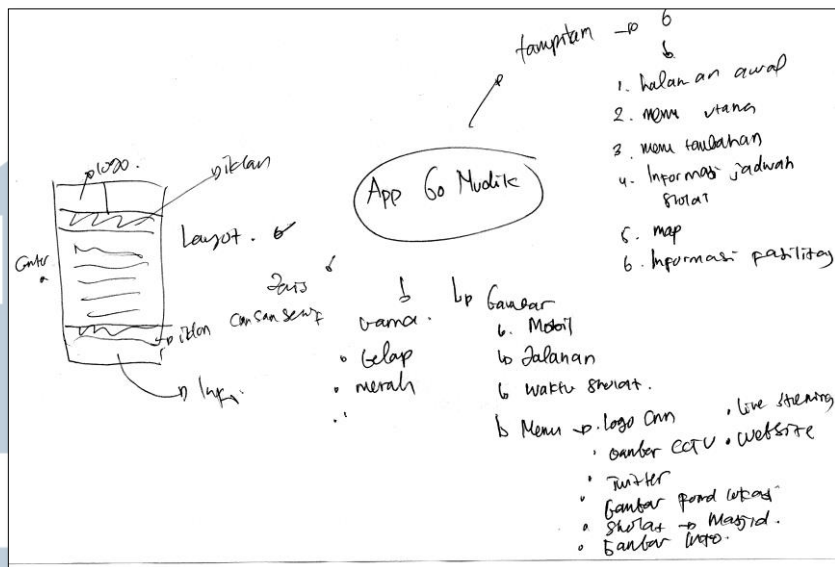 tampilan → 6
1. halaman awal
2. menu utama
3. menu tambahan
4. Informasi jadwal
sholat
5. map
6. Informasi fasilitas
App Go Mudik
logo.
iklan
Layout.
iklan
san serif
warna.
• Gelap
• merah
Gambar
Mobil
Jalanan
Waktu Sholat.
Menu → • logo Cnn
• live streming
• Gambar CCTV
• Website
• Twitter
• Gambar lokasi
• Sholat → Masjid.
• Gambar